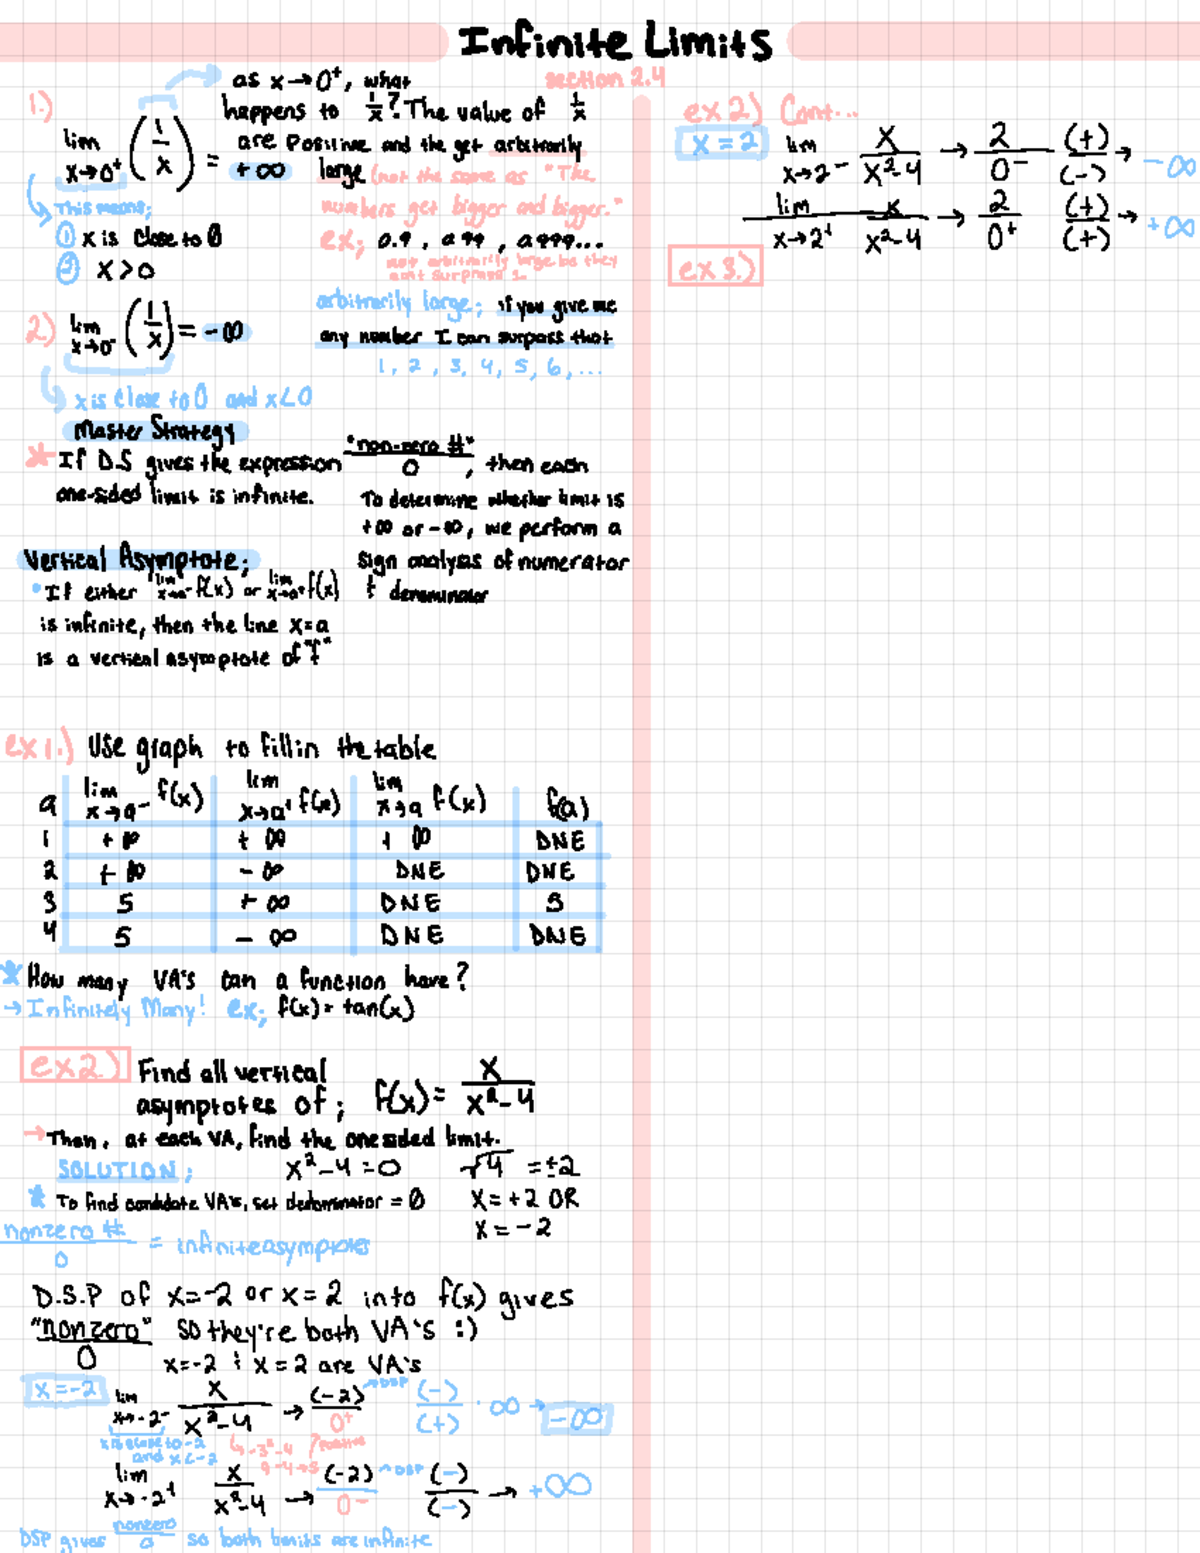 Infinite Limits
section 2.4
1.) lim x→0⁺ (1/x) = +∞
as x→0⁺, what
happens to 1/x? The value of 1/x
are positive and the get arbitrarily
large (not the same as "The
numbers get bigger and bigger."
ex; 0.9, 0.99, 0.999...
not arbitrarily large bc they
cant surpass 1.
This means;
① x is close to 0
② x>0
arbitrarily large; if you give me
any number I can surpass that
1, 2, 3, 4, 5, 6, ...
2) lim x→0⁻ (1/x) = -∞
x is close to 0 and x<0
Master Strategy
* If D.S gives the expression "non-zero #"/0, then each
one-sided limit is infinite.
To determine whether limit is
+∞ or -∞, we perform a
sign analysis of numerator
& denominator
Vertical Asymptote;
• If either lim x→a⁻ f(x) or lim x→a⁺ f(x)
is infinite, then the line x=a
is a vertical asymptote of "f"
ex 1.) Use graph to fill in the table
a lim x→a⁻ f(x) lim x→a⁺ f(x) lim x→a f(x) f(a)
1 +∞ +∞ +∞ DNE
2 +∞ -∞ DNE DNE
3 5 +∞ DNE 5
4 5 -∞ DNE DNE
* How many VA's can a function have?
→ Infinitely Many! ex; f(x) = tan(x)
ex2) Find all vertical
asymptotes of; f(x) = x/x²-4
→ Then, at each VA, find the one sided limit.
SOLUTION; x²-4=0 √4 = ±2
* To find candidate VA's, set denominator = 0 x=+2 OR
x=-2
nonzero #/0 = infinite asymptotes
D.S.P of x=-2 or x=2 into f(x) gives
"nonzero"/0 so they're both VA's :)
x=-2 & x=2 are VA's
x=-2 lim x→-2⁻ x/x²-4 → (-2)/0⁺ →DSP (-)/(+) · ∞ → -∞
x is close to -2
and x<-2
↳ -3²-4 positive
9-4=5
lim x→-2⁺ x/x²-4 → (-2)/0⁻ →DSP (-)/(-) → +∞
DSP gives nonzero/0 so both limits are infinite
ex 2) Cont...
x=2 lim x→2⁻ x/x²-4 → 2/0⁻ (+)/(-) → -∞
lim x→2⁺ x/x²-4 → 2/0⁺ (+)/(+) → +∞
ex 3.)